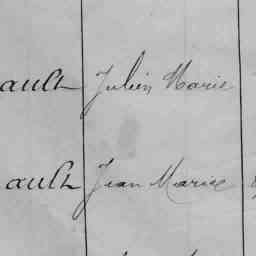 ault Julien Marie
ault Jean Marie